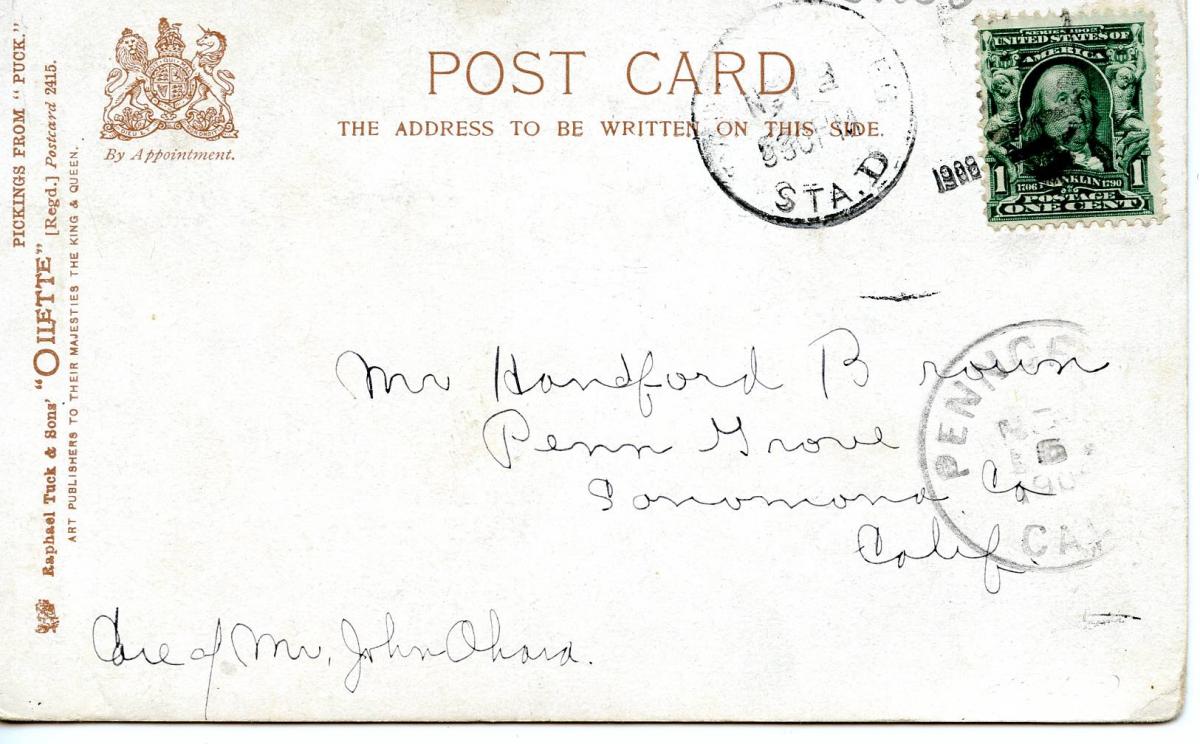 POST CARD
THE ADDRESS TO BE WRITTEN ON THIS SIDE.
By Appointment.
PICKINGS FROM "PUCK."
Raphael Tuck & Sons' "OILETTE" [Regd.] Postcard 2415.
ART PUBLISHERS TO THEIR MAJESTIES THE KING & QUEEN.
530 PM
STA. D
1906
SERIES 1902
UNITED STATES OF
AMERICA
1 1706 FRANKLIN 1790 1
POSTAGE
ONE CENT
Mr Handford Brown
Penn Grove
Sonomona Co
Calif.
PENNGR
NOV
5
190
CAL
Care of Mr. John Ohara.